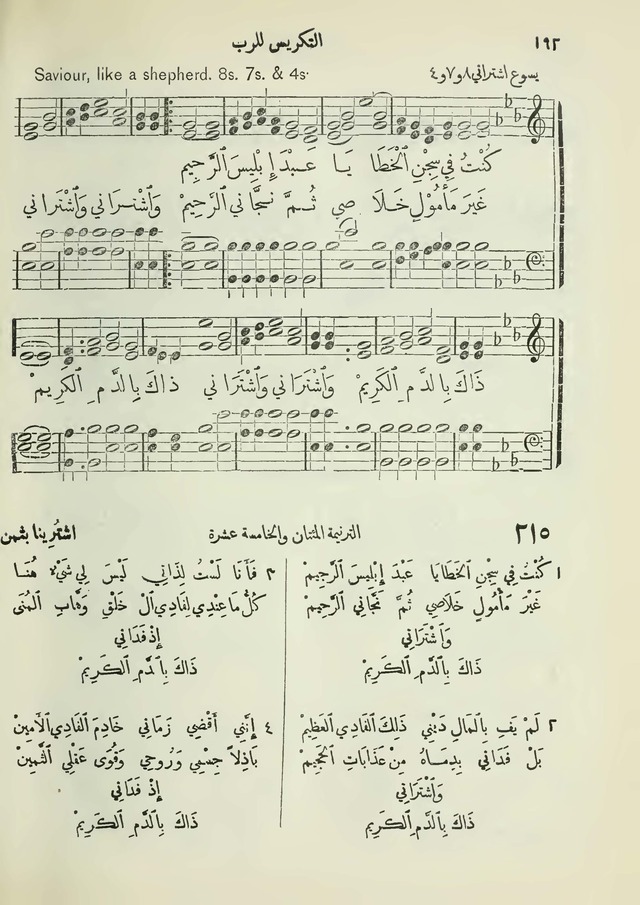 ١٩٢ التكريس للرب
يسوع اشتراني ٨ و ٧ و ٤ Saviour, like a shepherd. 8s. 7s. & 4s.
كُنْتُ فِي سِجْنِ ٱلْخَطَا يَا عَبْدَ إِبْلِيسَ ٱلرَّجِيمِ
غَيْرَ مَأْمُولٍ خَلَا صِي ثُمَّ نَجَّانِي ٱلرَّحِيمْ وَٱشْتَرَانِي وَٱشْتَرَانِي
ذَاكَ بِٱلدَّمِ ٱلْكَرِيمْ وَٱشْتَرَانِي وَٱشْتَرَانِي ذَاكَ بِٱلدَّمِ ٱلْكَرِيمْ
٢١٥ الترنيمة المئتان والخامسة عشرة اشتُرينا بثمن
١ كُنْتُ فِي سِجْنِ ٱلْخَطَايَا عَبْدَ إِبْلِيسَ ٱلرَّجِيمْ
غَيْرَ مَأْمُولٍ خَلَاصِي ثُمَّ نَجَّانِي ٱلرَّحِيمْ
وَٱشْتَرَانِي
ذَاكَ بِٱلدَّمِ ٱلْكَرِيمْ
٢ لَمْ يَفِ بِٱلْمَالِ دَيْنِي ذَلِكَ ٱلْفَادِي ٱلْعَظِيمْ
بَلْ فَدَانِي بِدِمَاهُ مِنْ عَذَابَاتِ ٱلْجَحِيمْ
وَٱشْتَرَانِي
ذَاكَ بِٱلدَّمِ ٱلْكَرِيمْ
٣ فَأَنَا لَسْتُ لِذَاتِي لَيْسَ لِي شَيْءٌ هُنَا
كُلُّ مَا عِنْدِي لِفَادِي ٱلْ خَلْقِ وَهَّابِ ٱلْمُنَى
إِذْ فَدَانِي
ذَاكَ بِٱلدَّمِ ٱلْكَرِيمْ
٤ إِنَّنِي أَقْضِي زَمَانِي خَادِمَ ٱلْفَادِي ٱلْأَمِينْ
بَاذِلاً جِسْمِي وَرُوحِي وَقُوَى عَقْلِي ٱلثَّمِينْ
إِذْ فَدَانِي
ذَاكَ بِٱلدَّمِ ٱلْكَرِيمْ